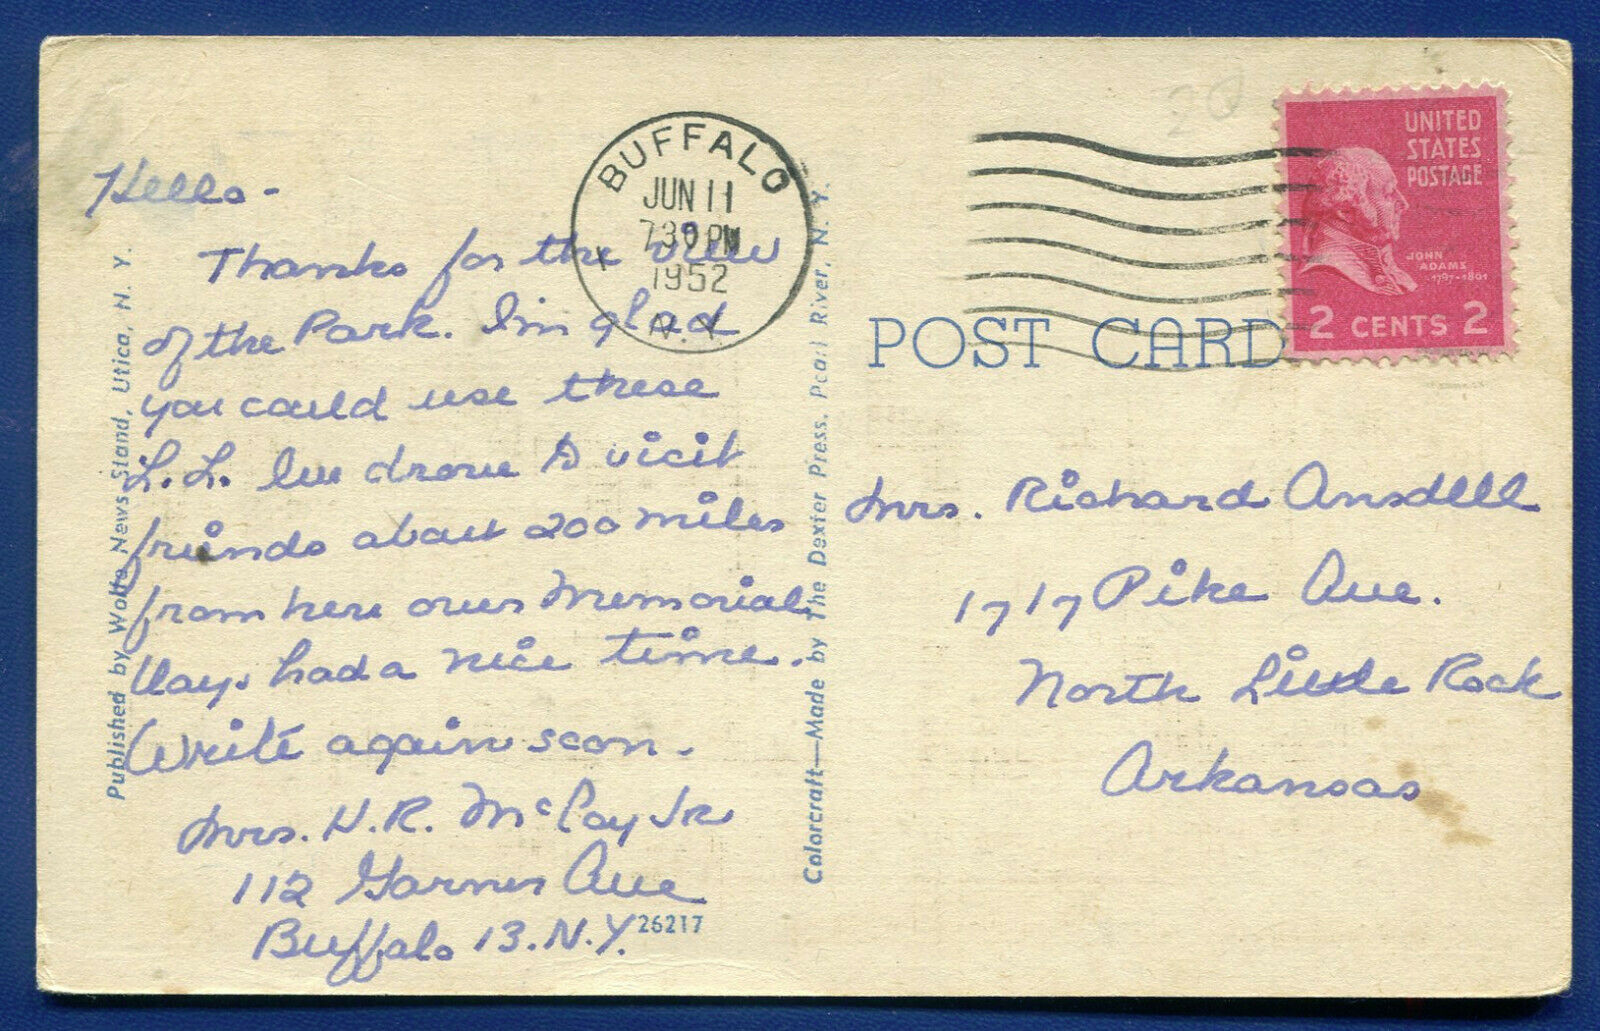 Hello -
Thanks for the view
of the Park. I'm glad
you could use these
L.L. We drove to visit
friends about 200 miles
from here over Memorial
Day. had a nice time.
Write again soon.
Mrs. H.R. McCoy Jr
112 Garner Ave
Buffalo 13. N.Y.
26217
Published by Wolfe News Stand, Utica, N. Y.
Colorcraft—Made by The Dexter Press, Pearl River, N. Y.
BUFFALO
JUN 11
7 30 PM
1952
N.Y.
POST CARD
UNITED
STATES
POSTAGE
JOHN
ADAMS
1797-1801
2 CENTS 2
20
Mrs. Richard Ansdell
1717 Pike Ave.
North Little Rock
Arkansas